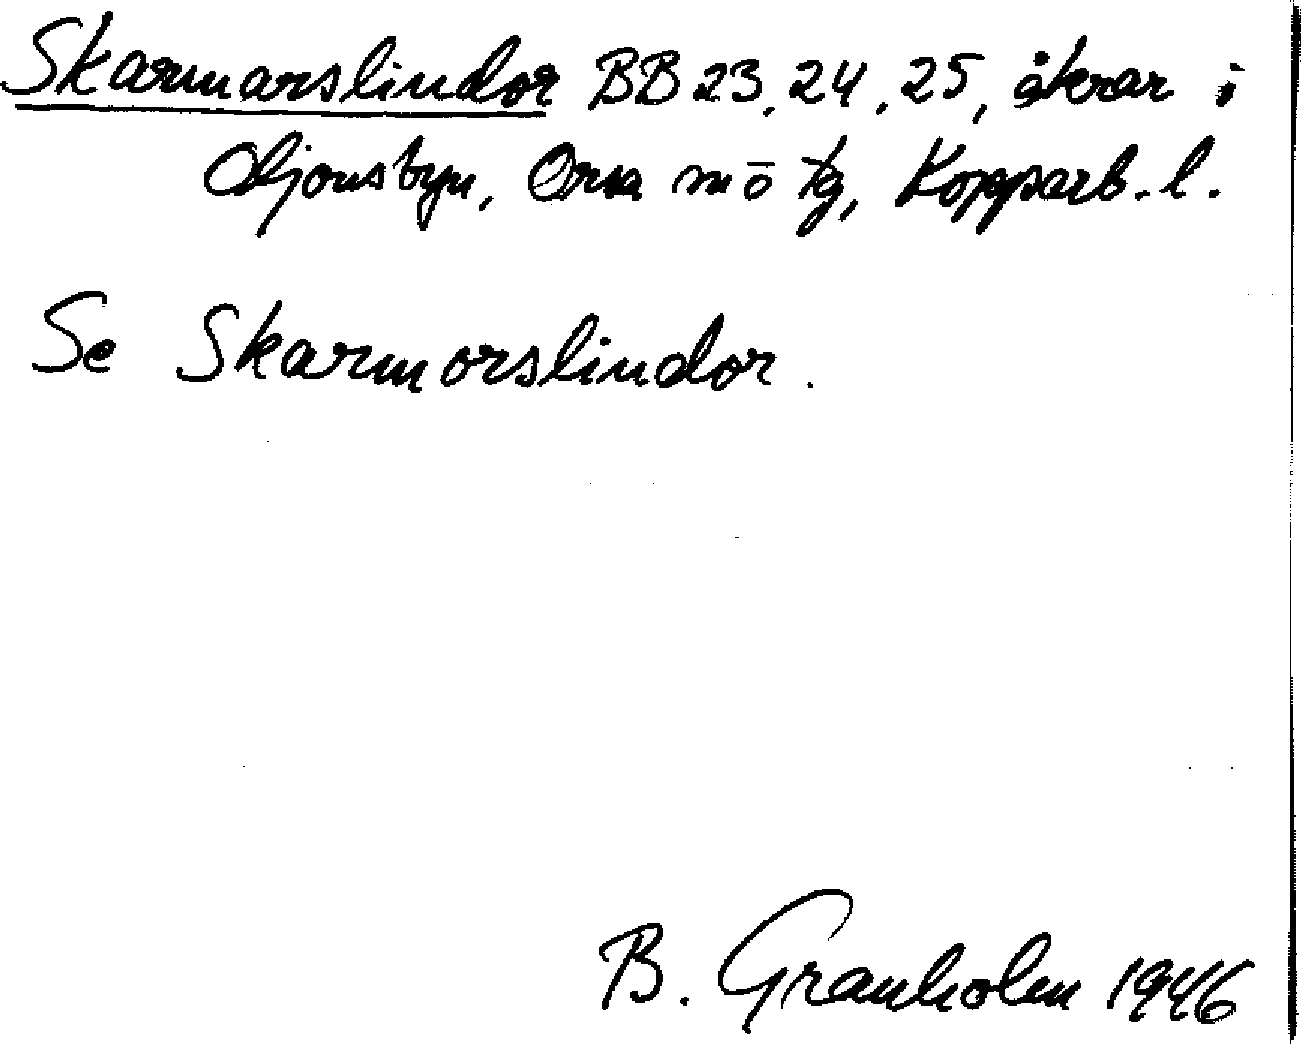 Skarmarslindor BB 23, 24, 25, åkrar i
Oljonsbyn, Orsa sn o tg, Kopparb. l.
Se Skarmorslindor.
B. Granholm 1946